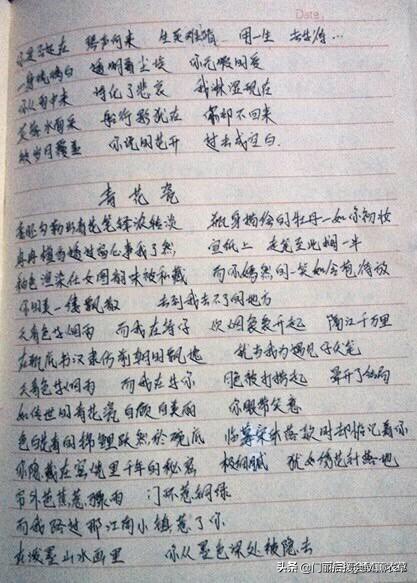 Date.
你是否还在 琴声何来 生死难猜 用一生 去等待…
一身琉璃白 透明着尘埃 你无瑕的爱
你从雨中来 诗化了悲哀 我淋湿现在
芙蓉水面采 船行影犹在 你却不回来
被岁月覆盖 你说的花开 过去成空白.
青花瓷
素胚勾勒出青花笔锋浓转淡 瓶身描绘的牡丹一如你初妆
冉冉檀香透过窗心事我了然 宣纸上 走笔至此搁一半
釉色渲染仕女图韵味被私藏 而你嫣然的一笑如含苞待放
你的美一缕飘散 去到我去不了的地方
天青色等烟雨 而我在等你 炊烟袅袅升起 隔江千万里
在瓶底书汉隶仿前朝的飘逸 就当我为遇见你伏笔
天青色等烟雨 而我在等你 月色被打捞起 晕开了结局
如传世的青花瓷自顾自美丽 你眼带笑意
色白花青的锦鲤跃然於碗底 临摹宋体落款时却惦记着你
你隐藏在窑烧里千年的秘密 极细腻 犹如绣花针落地
帘外芭蕉惹骤雨 门环惹铜绿
而我路过那江南小镇惹了你
在泼墨山水画里 你从墨色深处被隐去
头条